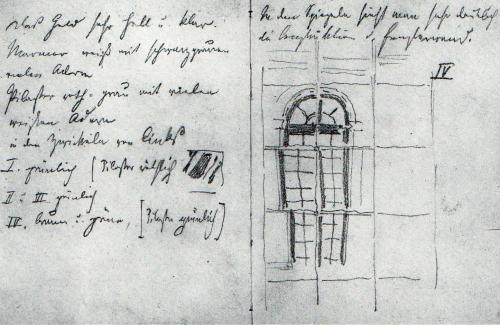 Das Gold sehr hell u. klar.
Marmor weiß mit schwarzgrauen
vielen Adern
Pilaster roth-grau mit vielen
weißen Adern
in den Zwickeln von links
I. grünlich (Pilaster röthlich
II u. III grünlich
IV. braun u. grün, [Pilaster grünlich]
In den Spiegeln sieht man sehr deutlich
die Construktion d. Fensterwand.
IV